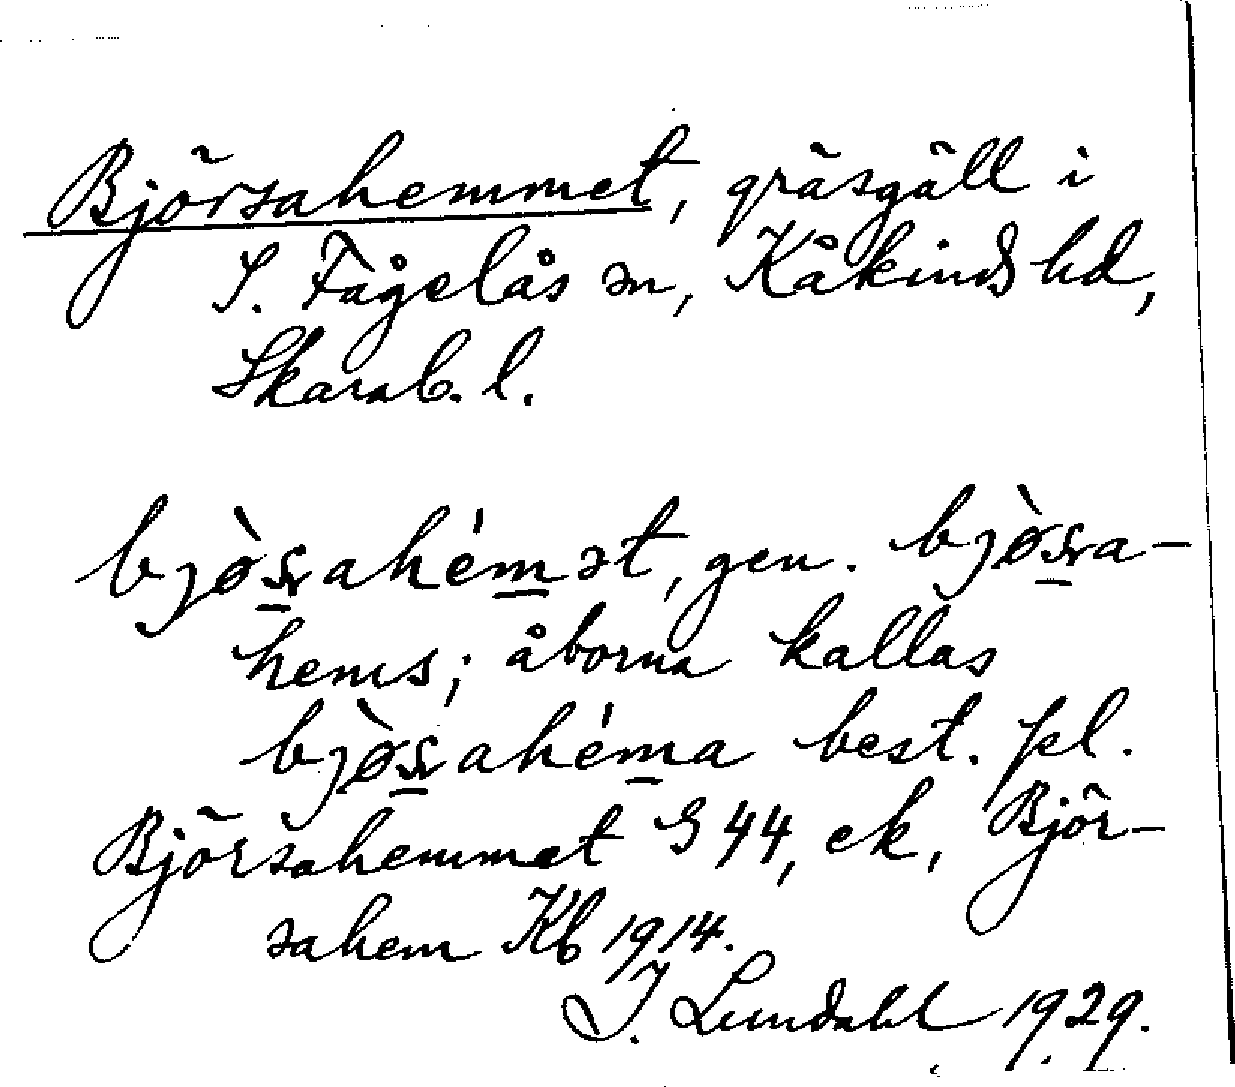 Björsahemmet, gräsgäll i
S. Fågelås sn, Kåkinds hd,
Skarab. l.
bjø̀sahémət, gen. bjø̀sa-
hems; åborna kallas
bjø̀sahéma best. pl.
Björsahemmet G 44, ek, Björ-
sahem Kb 1914.
I. Lundahl 1929.